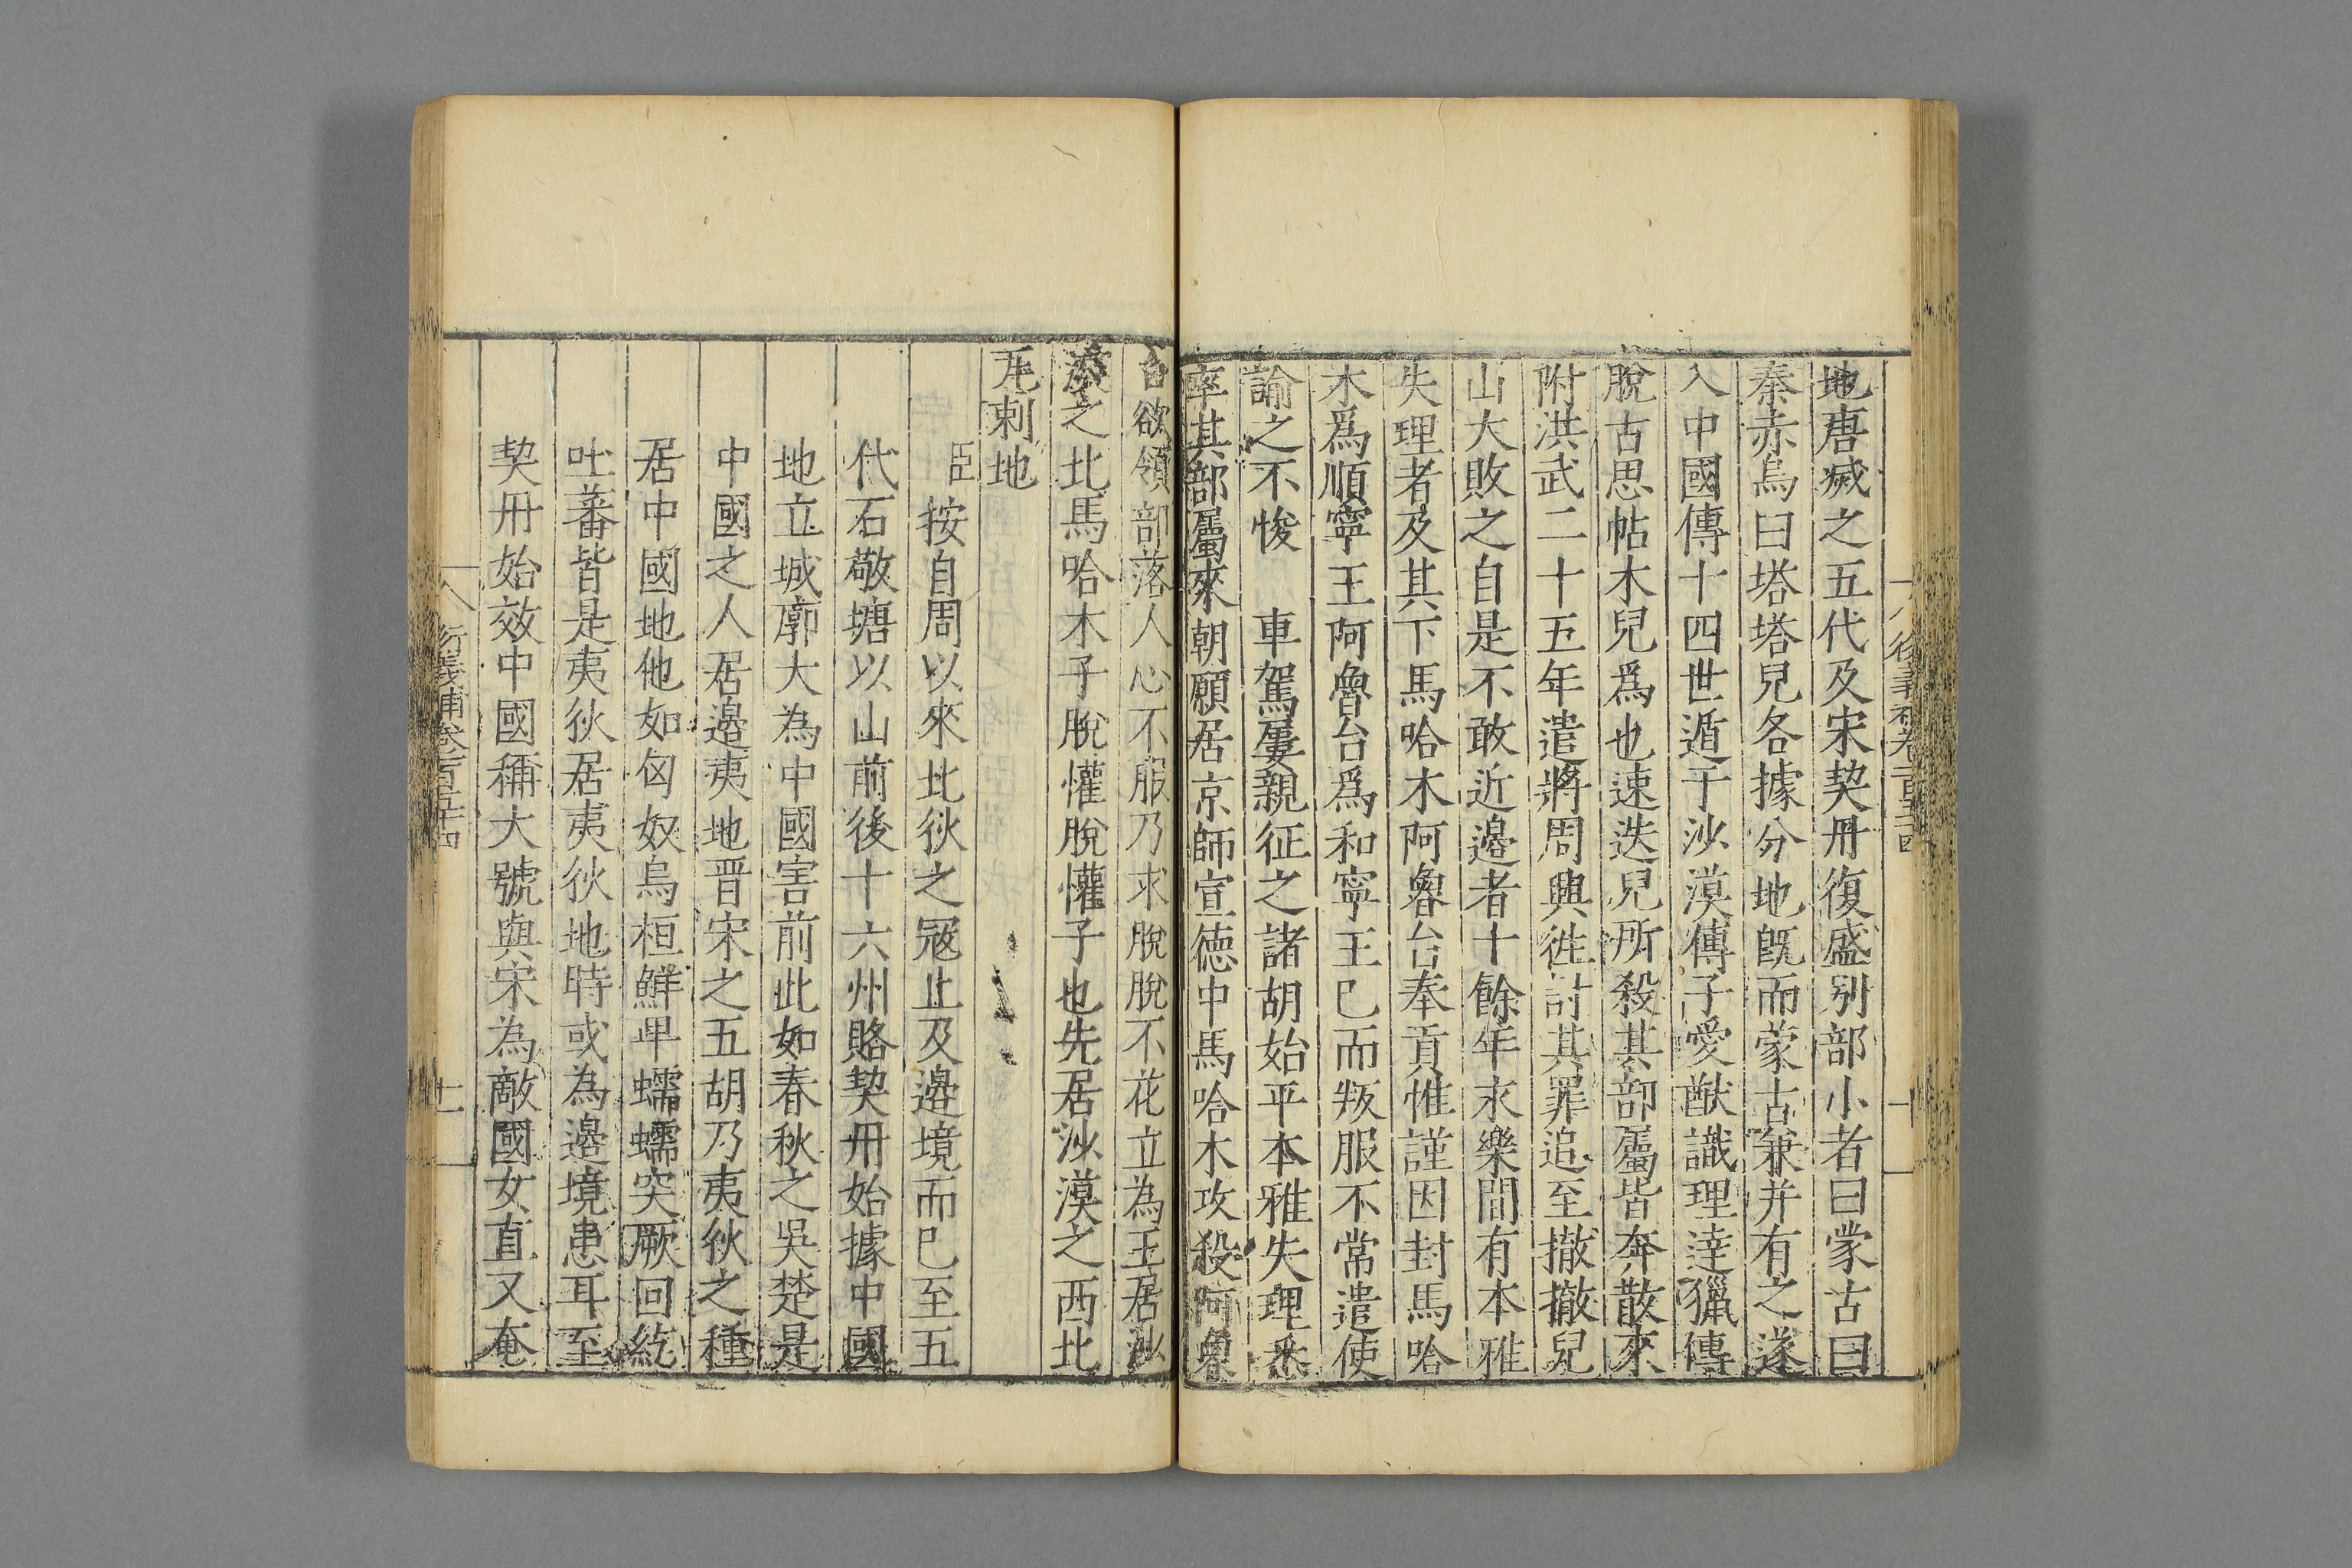 地唐滅之五代及宋契丹復盛别部小者曰蒙古曰
秦赤烏曰塔塔兒各據分地旣而蒙古兼并有之遂
入中國傳十四世遁于沙漠傳子愛猷識理達獵傳
脫古思帖木兒爲也速迭兒所殺其部屬皆奔散來
附洪武二十五年遣將周興徃討其罪追至撤撤兒
山大敗之自是不敢近邉者十餘年永樂間有本雅
失理者及其下馬哈木阿魯台奉貢惟謹因封馬哈
木爲順寧王阿魯台爲和寧王已而叛服不常遣使
諭之不悛　車駕屢親征之諸胡始平本雅失理悉
率其部屬來朝願居京師宣德中馬哈木攻殺阿魯
台欲領部落人心不服乃求脫脫不花立為王居沙
漠之北馬哈木子脫懽脫懽子也先居沙漠之西北
瓦剌地
臣按自周以來北狄之寇止及邉境而已至五
代石敬塘以山前後十六州賂契丹始據中國
地立城廓大為中國害前此如春秋之吳楚是
中國之人居邉夷地晋宋之五胡乃夷狄之種
居中國地他如匈奴烏桓鮮卑蠕蠕突厥回紇
吐蕃皆是夷狄居夷狄地時或為邉境患耳至
契丹始效中國稱大號與宋為敵國女直又奄
衍義補卷一百五十四
十一